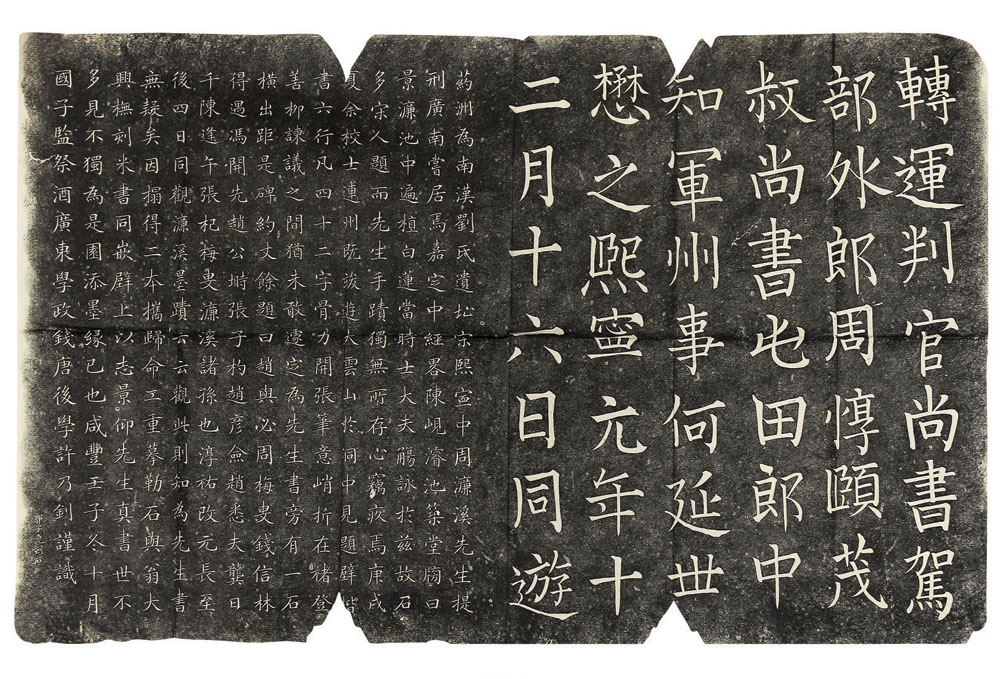 轉運判官尚書駕
部外郎周惇頤茂
叔尚書屯田郎中
知軍州事何延世
懋之熙寧元年十
二月十六日同遊
葯洲為南漢劉氏遺址宋熙寧中周濂溪先生提
刑廣南嘗居焉嘉定中經畧陳峴濬池築堂牓曰
景濂池中遍植白蓮當時士大夫觴詠於茲故石
多宋人題而先生手蹟獨無所存心竊疚焉庚戌
夏余校士連州既泼遊大雲山於同中見題壁楷
書六行凡四十二字骨力開張筆意峭折在褚登
善柳諫議之間猶未敢遽定為先生書旁有一石
橫出距是碑約丈餘題曰趙與必周梅叟錢信林
得遇馮開先趙公塒張子杓趙彥僉趙悉夫龔日
千陳進午張杞梅叟濂溪諸孫也淳祐改元長至
後四日同觀濂溪墨蹟云云觀此則知為先生書
無疑矣因搨得二本攜歸命工重摹勒石與翁大
興橅刻米書同嵌壁上以志景仰先生真書世不
多見不獨為是園添墨緣已也咸豐壬子冬十月
國子監祭酒廣東學政錢唐後學許乃釗謹識